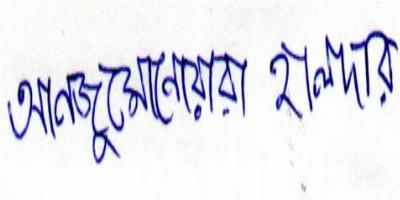 আনজুমোনোয়ারা হালদার